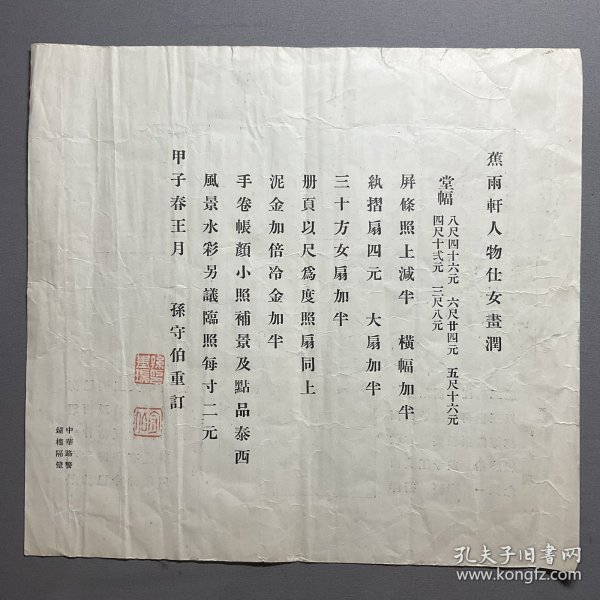 蕉雨軒人物仕女畫潤
堂幅 八尺四十六元 六尺廿四元 五尺十六元
四尺十弍元 三尺八元
屏條照上減半 橫幅加半
紈摺扇四元 大扇加半
三十方女扇加半
册頁以尺爲度照扇同上
泥金加倍冷金加半
手卷帳顏小照補景及點品泰西
風景水彩另議臨照每寸二元
甲子春王月 孫守伯重訂
中華路警
鐘樓隔壁
孔夫子旧书网
www.kongfz.com